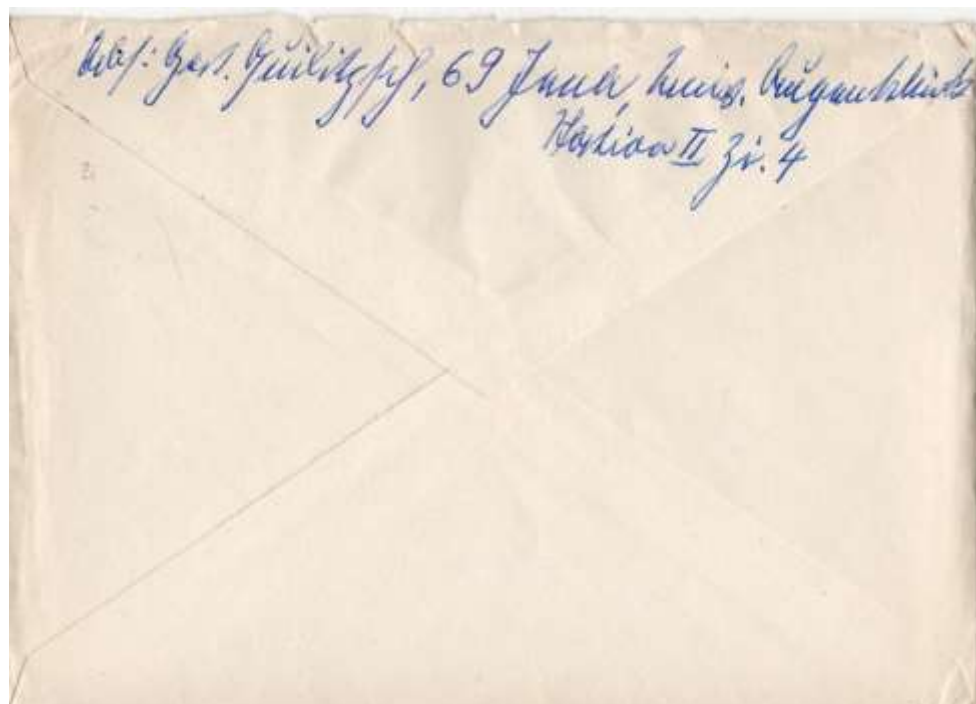 Abs: Gert. Quilitzsch, 69 Jena, Univ. Augenklinik
Station II Zi. 4